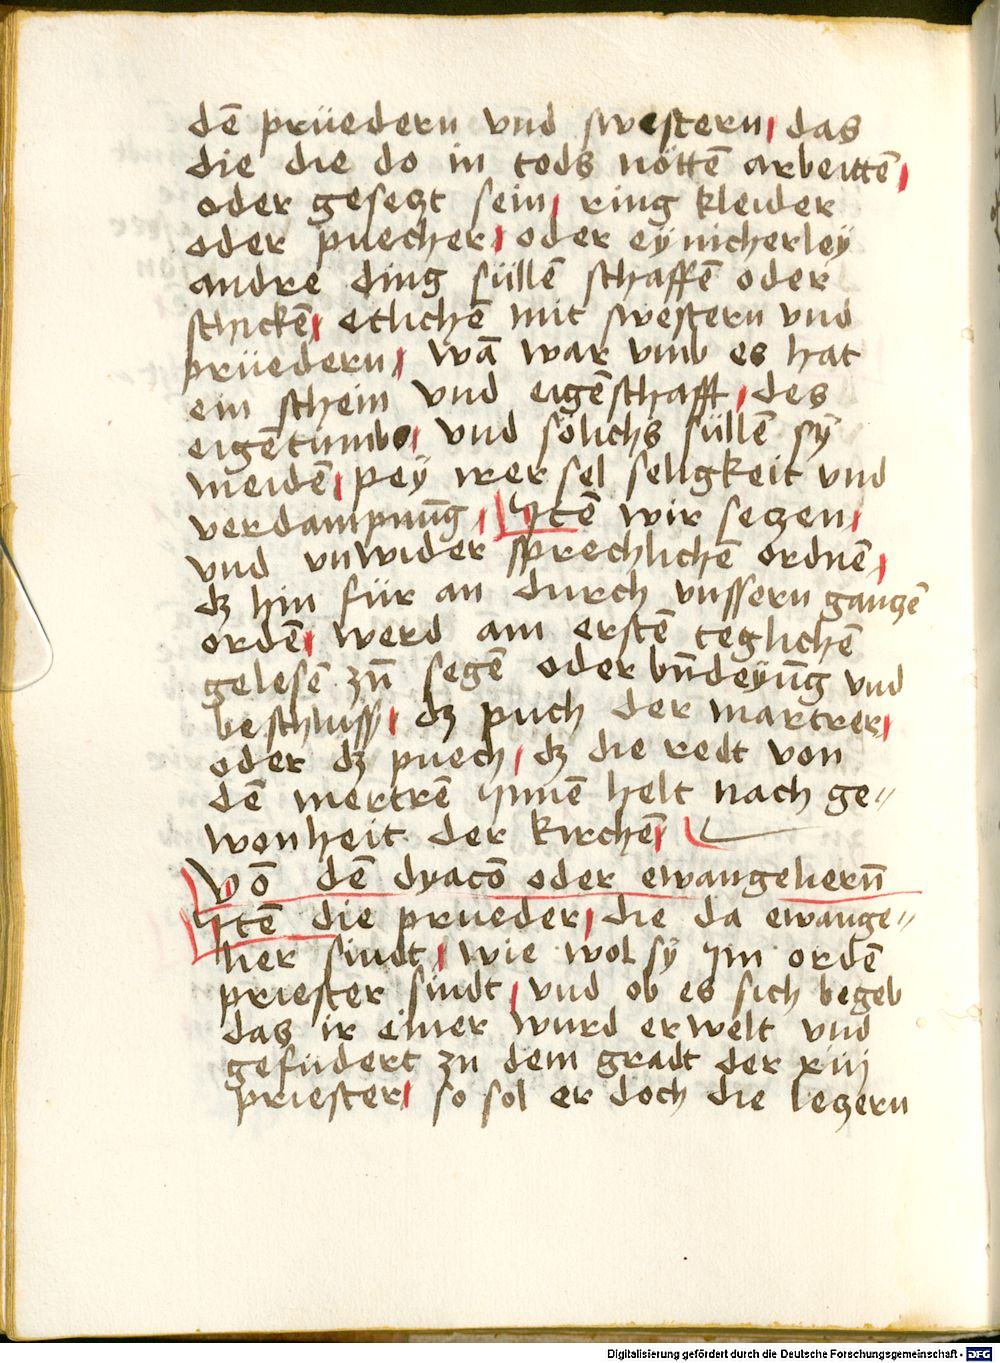 dē prüedern vnd swestern, das
die die do in tods nötten arbeittē,
oder gesetzt sein, ring kleider
oder puecher, oder eÿnicherleÿ
andre ding süllē schaffē oder
schickē, etlichē mit swestern vnd
prüedern, wā war vmb es hat
ein schein vnd eigēschafft, des
eigētumbs, vnd sölichs süllē sÿ
meidē, peÿ irer sel seligkeit vnd
verdampnūg, Itē wir seczen,
vnd vnwider sprechlichē ordnē,
dz hin für an durch vnssern ganczē
ordē, werd am erstē teglichē
gelesē zū segē oder bn̄deyūg vnd
beschluss, dz puch der martrer,
oder dz puech, dz die redt von
dē mertrē ynnē helt nach ge=
wonheit der kirchē,
Vō dē dyacō oder ewangeliern̄
Itē die prueder, die da ewange=
lier sindt, wie wol sÿ Im ordē
priester sindt, vnd ob es sich begeb
das ir einer wurd erwelt vnd
gefudert zu dem gradt der xiij
priester, so sol er doch die leczern
Digitalisierung gefördert durch die Deutsche Forschungsgemeinschaft - DFG